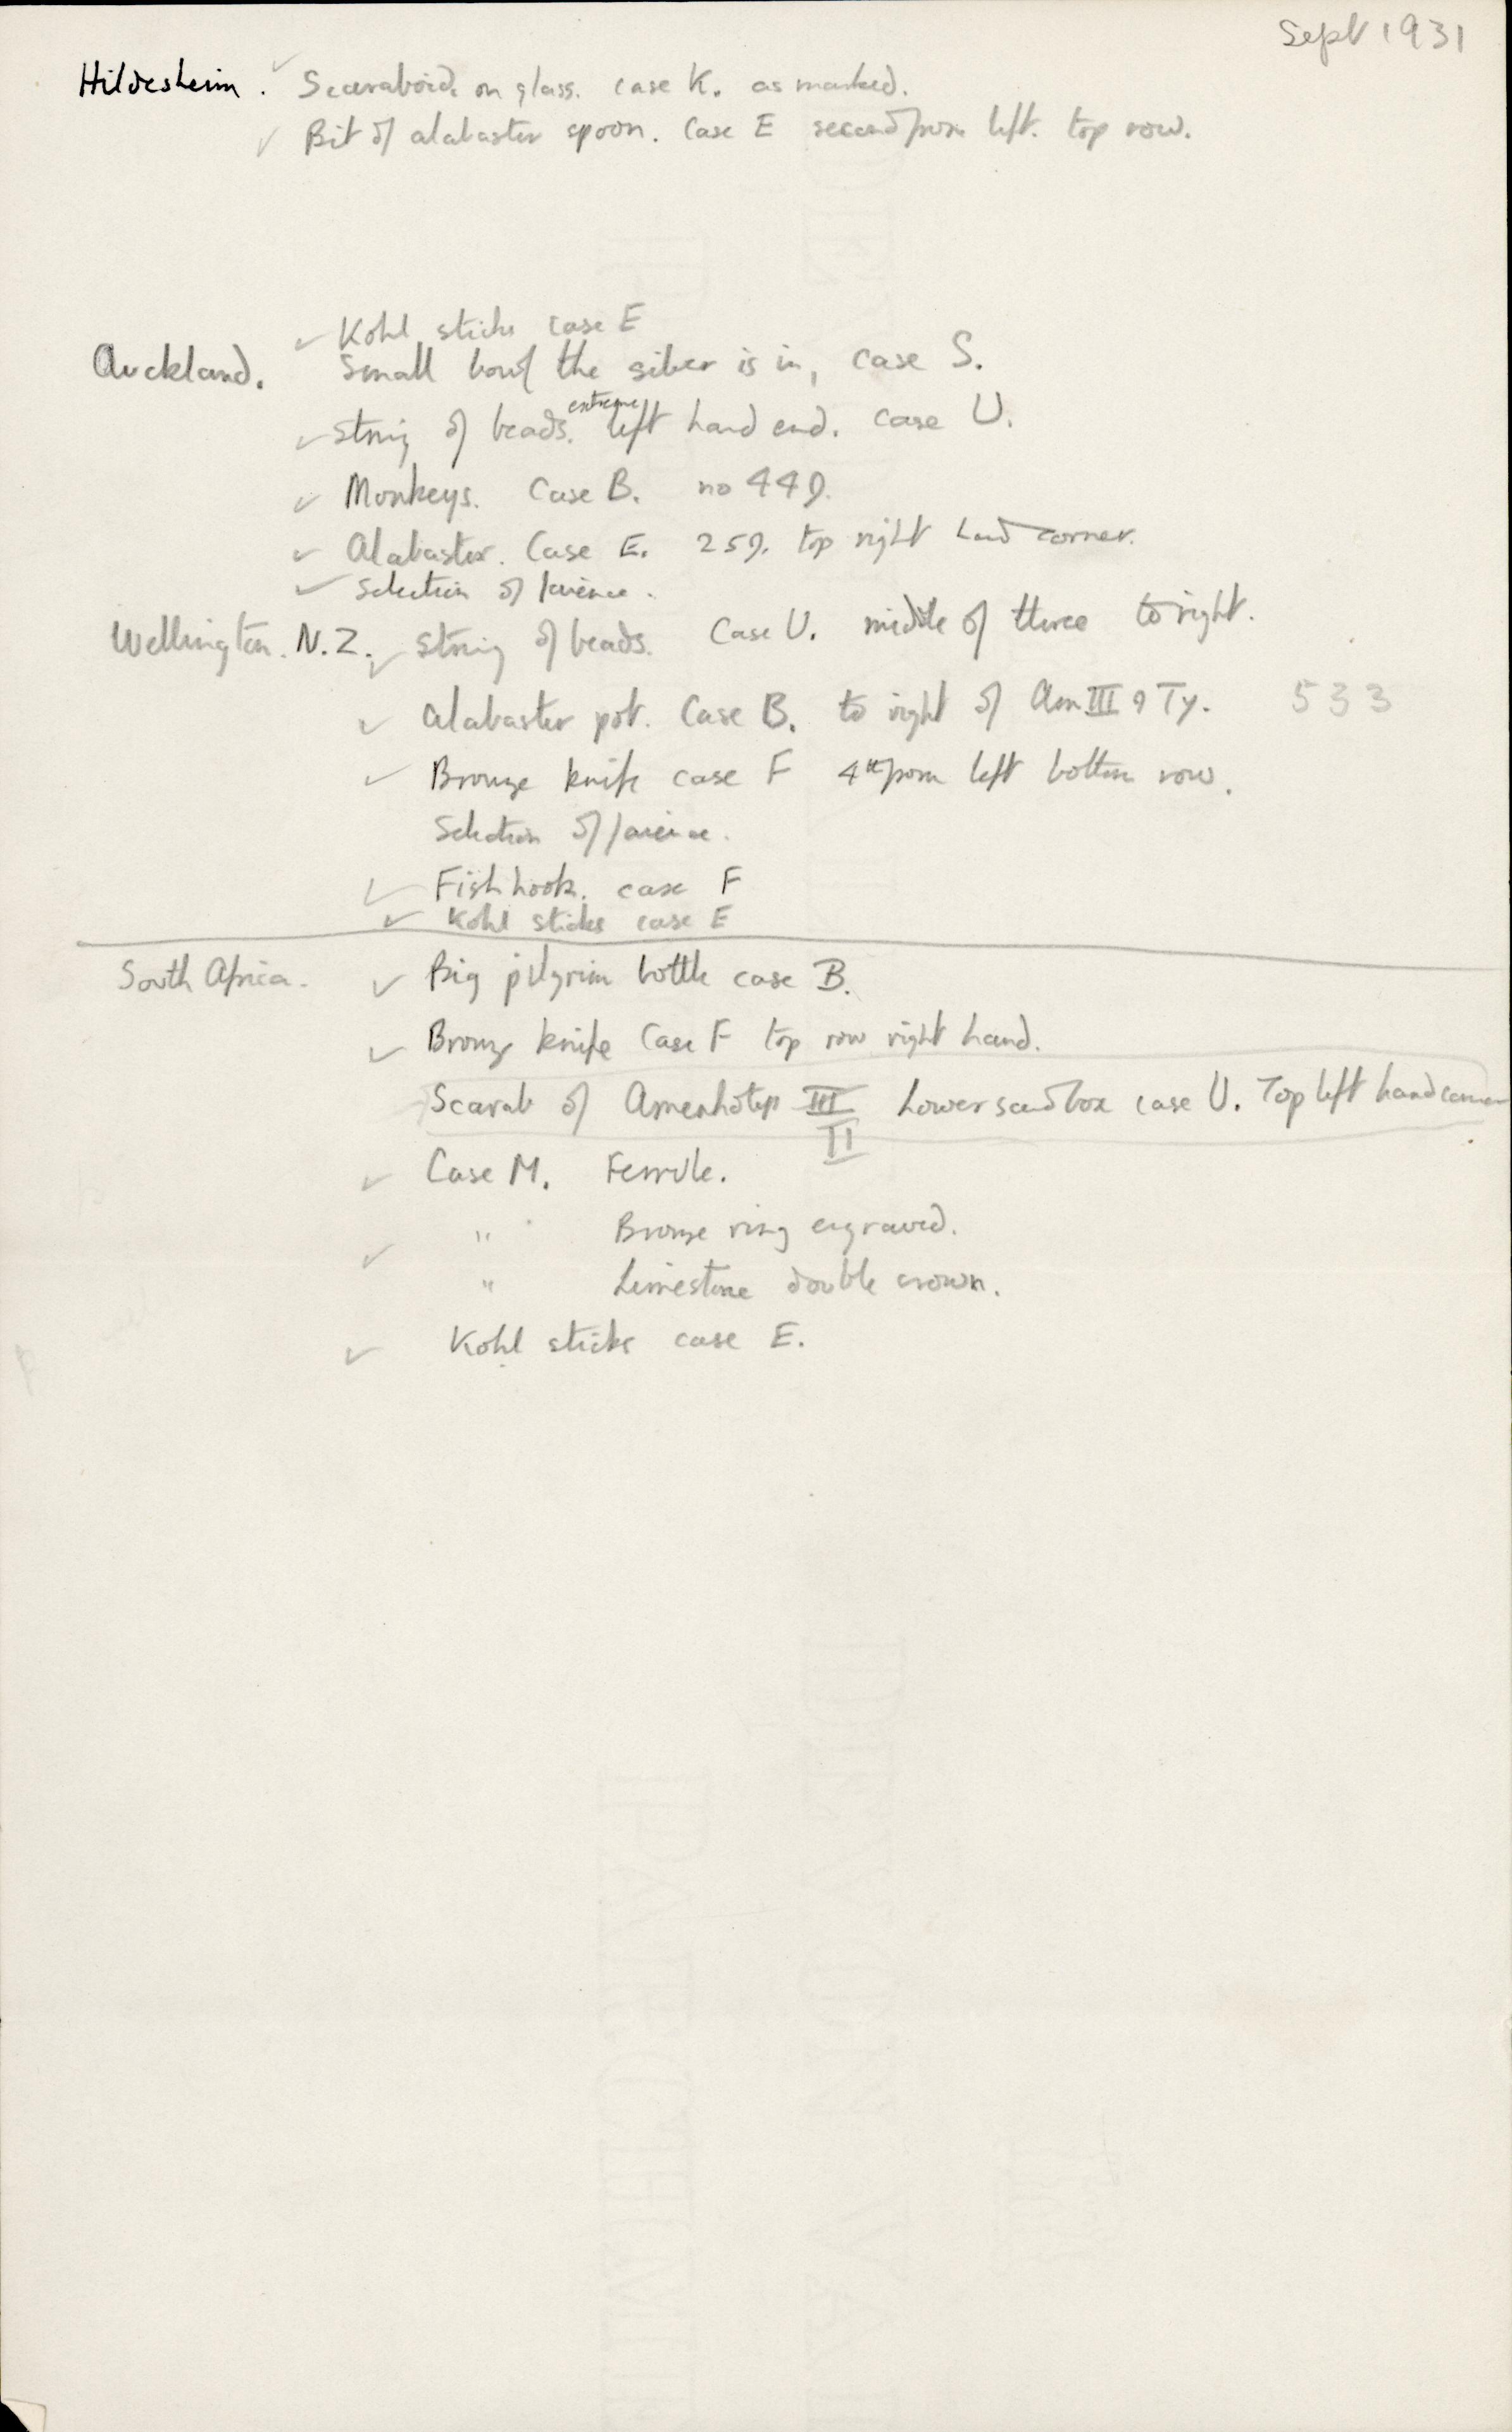 Sept 1931
Hildesheim. ✓ Scaraboid on glass. case K. as marked.
✓ Bit of alabaster spoon. Case E second from left. top row.
✓ Kohl sticks case E
Auckland. Small bowl the silver is in, case S.
✓ String of beads. extreme left hand end. case U.
✓ Monkeys. Case B. no 449.
✓ Alabaster. Case E. 259. top right hand corner.
✓ Selection of faience.
Wellington. N.Z. ✓ String of beads. Case U. middle of three to right.
✓ Alabaster pot. Case B. to right of Am III & Ty. 533
✓ Bronze knife case F 4th from left bottom row.
Selection of faience.
✓ Fish hook. case F
✓ Kohl sticks case E
South Africa. ✓ Big pilgrim bottle case B.
✓ Bronze knife Case F top row right hand.
Scarab of Amenhotep III Lower sand box case U. Top left hand corner
II
✓ Case M. Ferrule.
✓ " Bronze ring engraved.
" Limestone double crown.
✓ Kohl sticks case E.